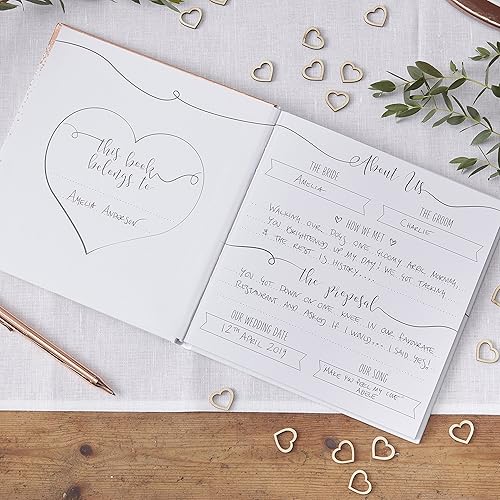 This book
belongs to
AMELIA ANDERSON
About Us
THE BRIDE
AMELIA
THE GROOM
CHARLIE
HOW WE MET
WALKING OUR DOGS ONE GLOOMY APRIL MORNING,
YOU BRIGHTENED UP MY DAY! WE GOT TALKING
& THE REST IS HISTORY....
The proposal
YOU GOT DOWN ON ONE KNEE IN OUR FAVOURATE
RESTAURANT AND ASKED IF I WOULD... I SAID YES!
OUR WEDDING DATE
12TH APRIL 2019
OUR SONG
MAKE YOU FEEL MY LOVE
ADELE